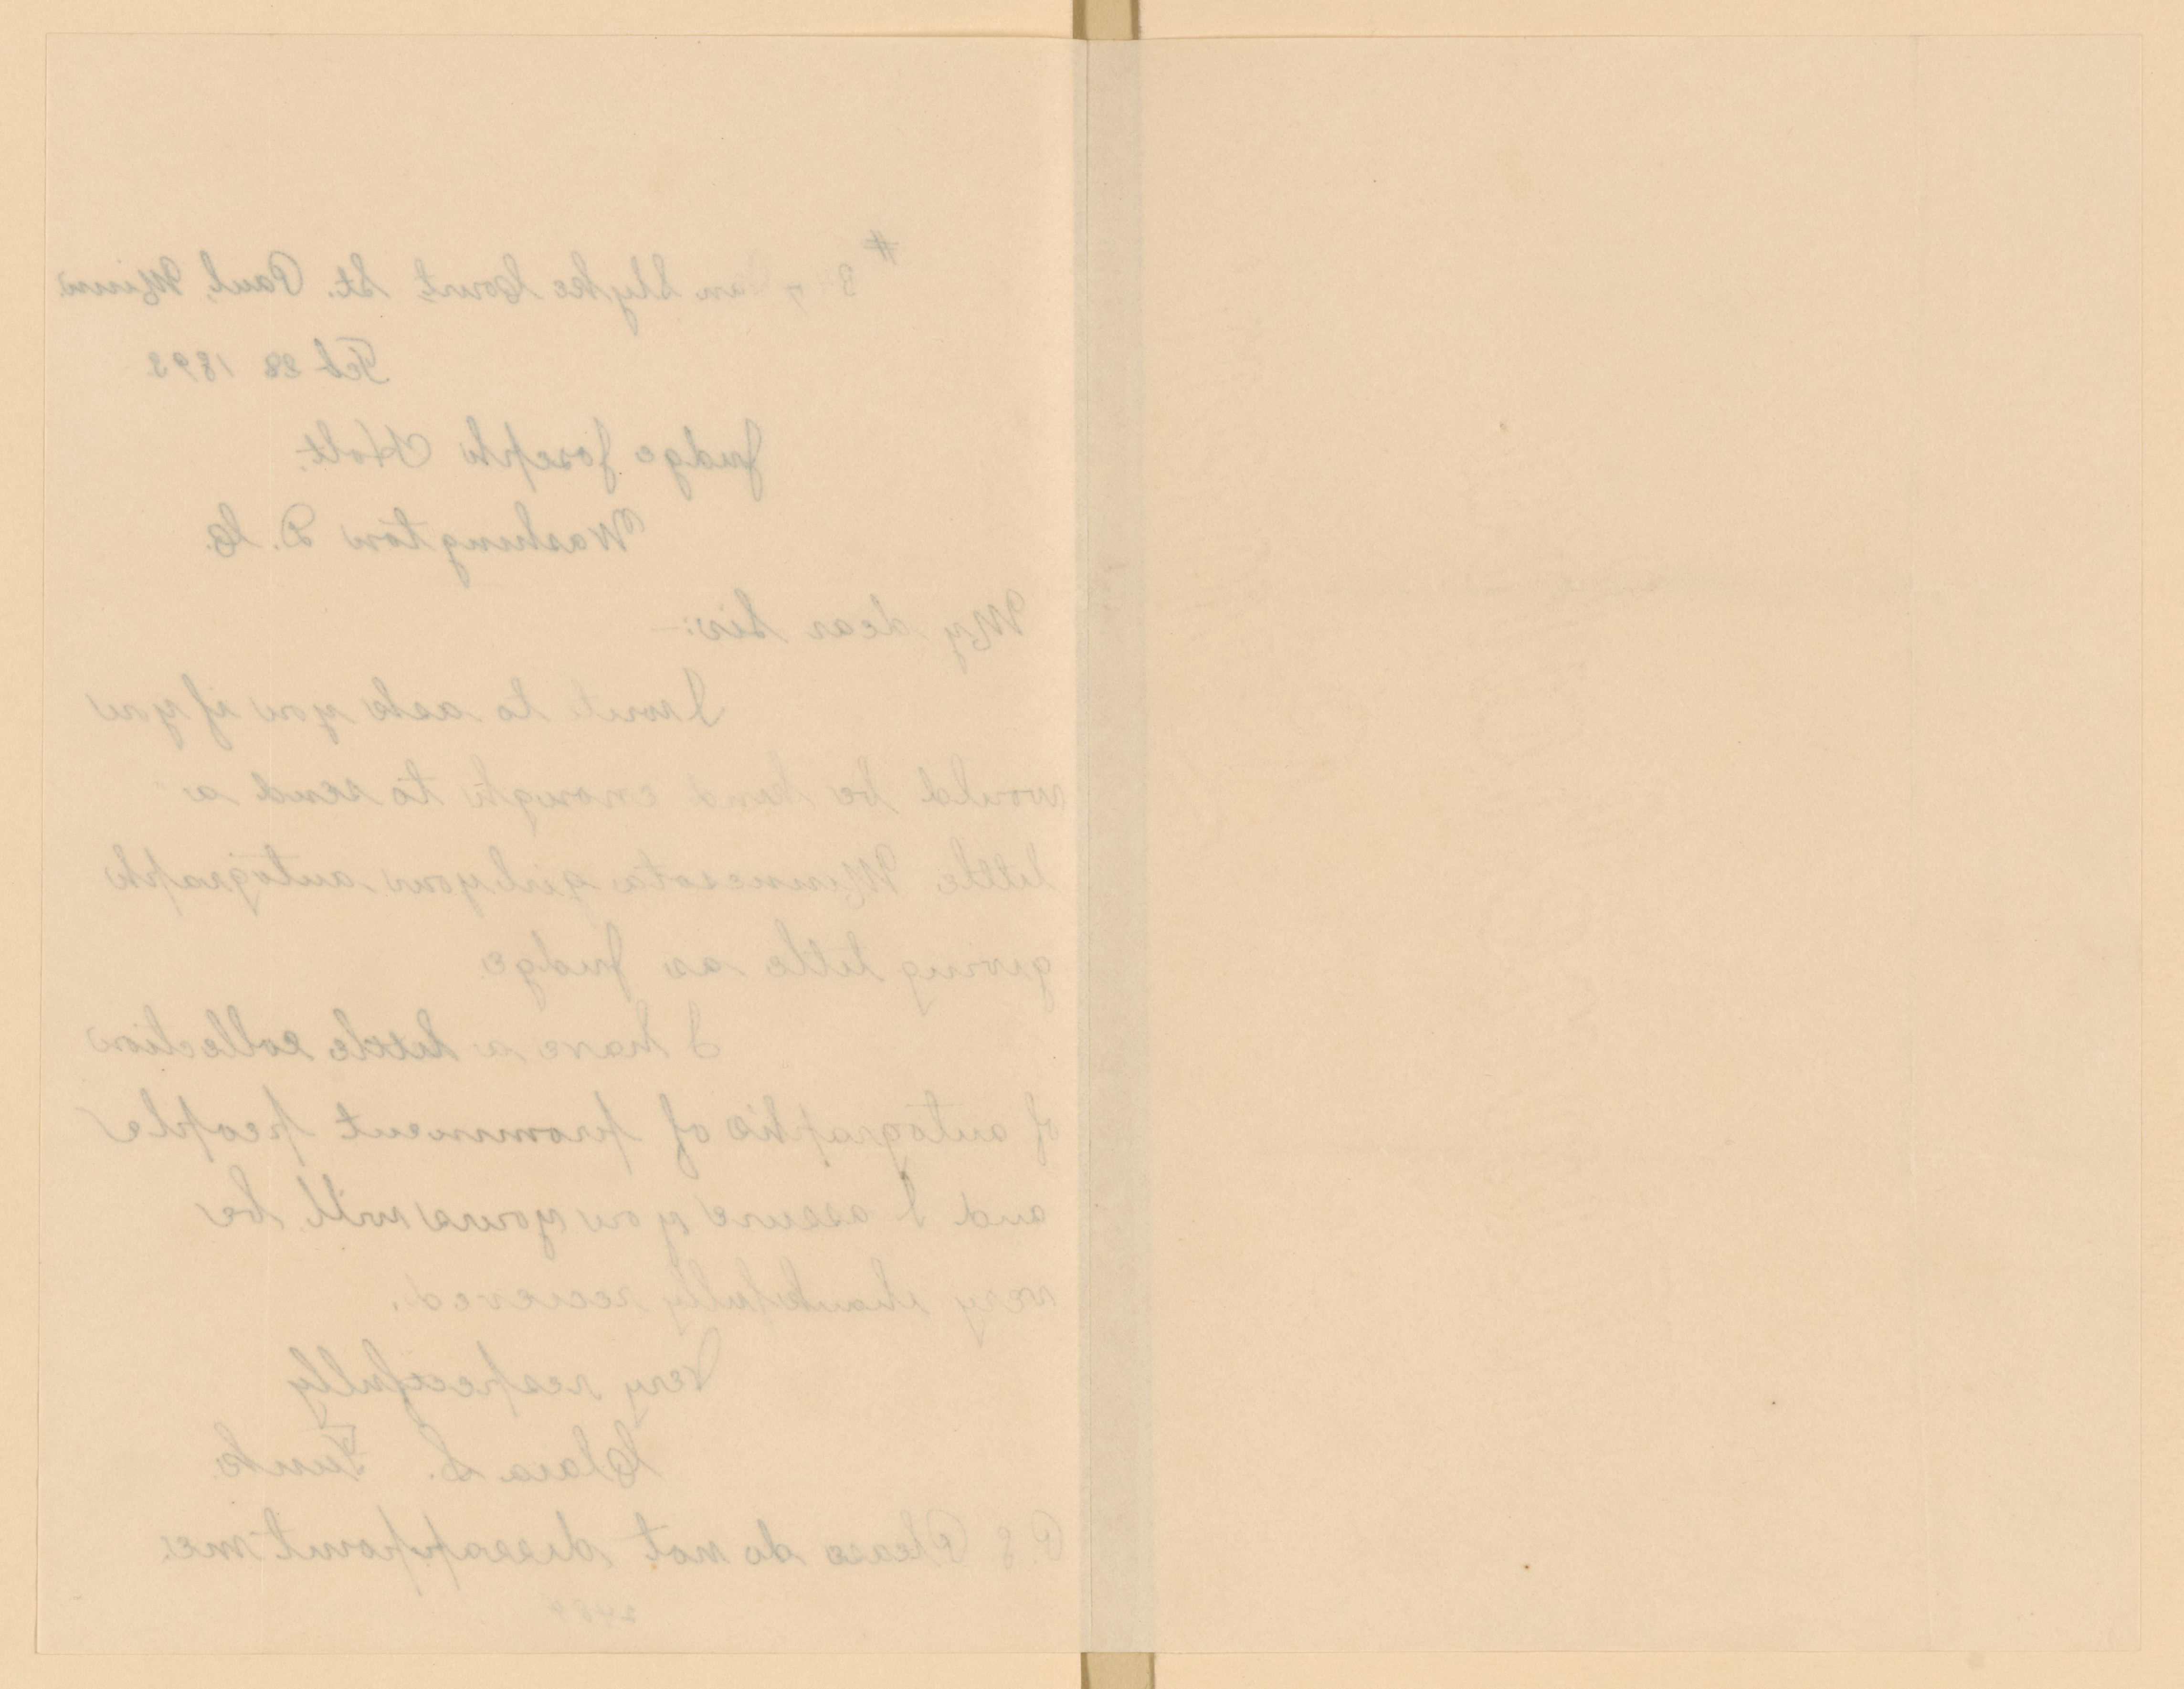 # 3 7 Van Slyke Court, St. Paul, Minn.
Feb 28 1893
Judge Joseph Holt,
Washington D. C.
My dear Sir:—
I write to ask you if you
would be kind enough to send a
little Minnesota girl your autograph
giving title as Judge
I have a little collection
of autographs of prominent people
and I assure you yours will be
very thankfully recieved.
Very respectfully
Clara L. Funk.
P.S Please do not dissappoint me.